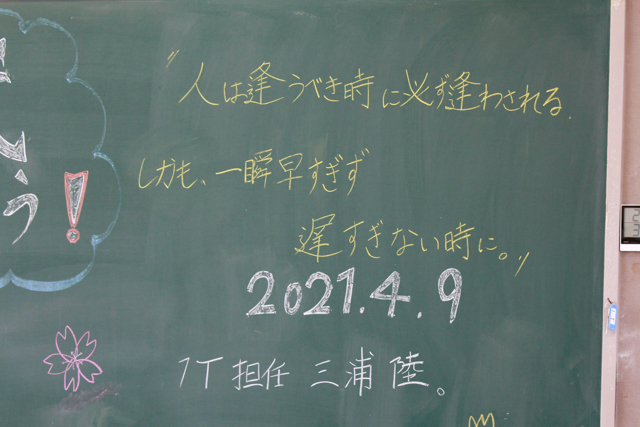 〝人は逢うべき時に必ず逢わされる.
しかも、一瞬早すぎず
遅すぎない時に。〟
う!
2021.4.9
1T 担任 三浦 陸。